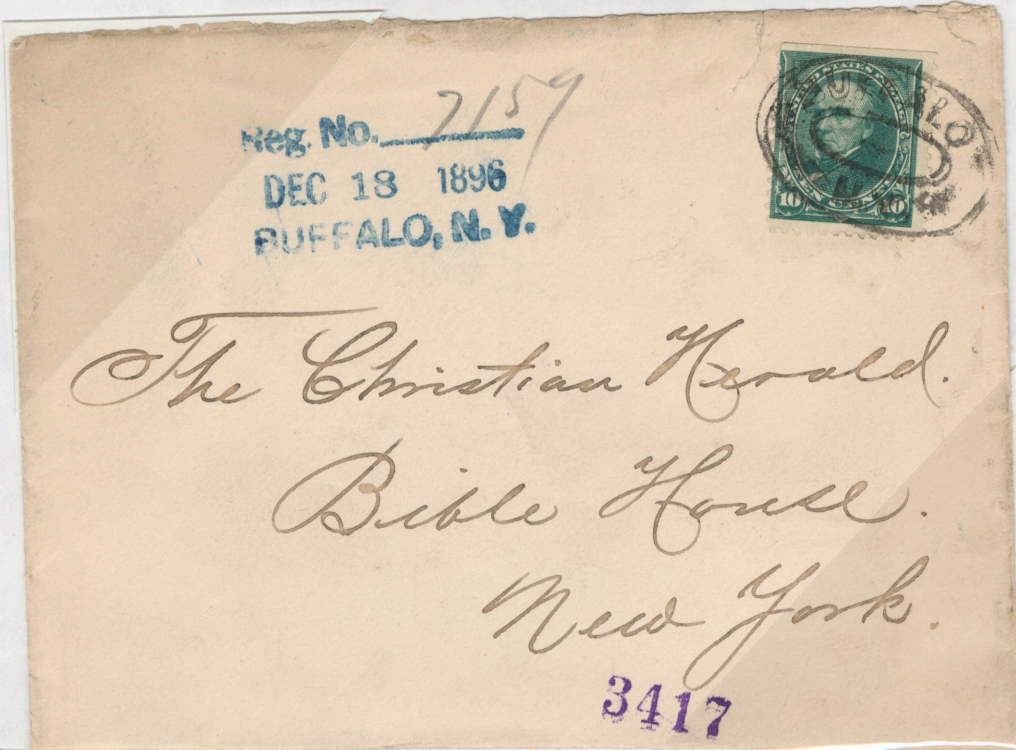 Reg. No. 7159
DEC 18 1896
BUFFALO, N. Y.
BUFFALO
10 10
The Christian Herald.
Bible House.
New York.
3417